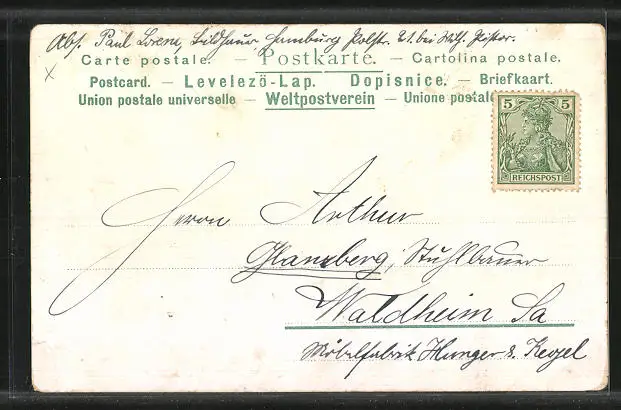 Abs. Paul Lorenz, Bildhauer, Hamburg 21. bei Wilh.
Carte postale. — Postkarte. — Cartolina postale.
Postcard. — Levelező-Lap. Dopisnice. — Briefkaart.
Union postale universelle — Weltpostverein — Unione postale
5 5
REICHSPOST
Herrn Arthur
Glanzberg, Stuhlbauer
Waldheim Sa
Möbelfabrik Hunger &